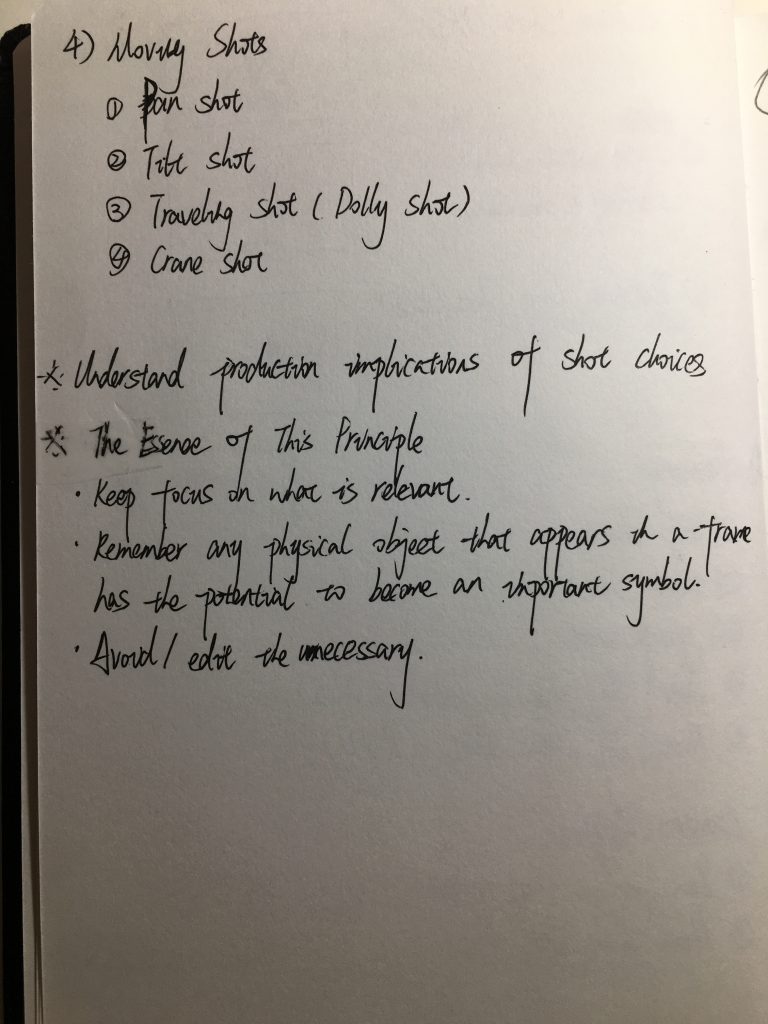 4) Moving Shots
① Pan shot
② Tilt shot
③ Traveling shot (Dolly shot)
④ Crane shot
※ Understand production implications of shot choices
※ The Essence of This Principle
· Keep focus on what is relevant.
· Remember any physical object that appears in a frame
has the potential to become an important symbol.
· Avoid / edit the unnecessary.